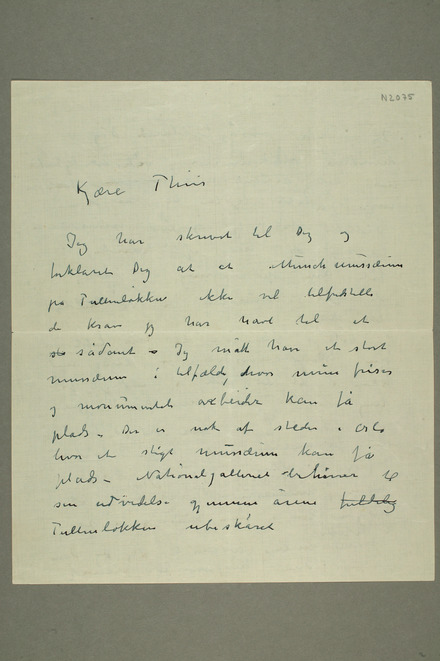 N2075
Kjære Thiis
Jeg har skrevet til Dig og
forklaret Dig at et Munchmusæum
på Tullinløkken ikke vil tilfredsstille
de krav jeg har havt til et
sådant – Jeg måtte have et stort
musæum i tilfælde, hvor mine friser
og monumentale arbeider kan få
plads. Der er nok af steder i Oslo
hvor et sligt musæum kan få
plads – Nationalgalleriet behøver til
sin udvidelse gjennem årene fuldstændig
Tullinløkken ubeskåret